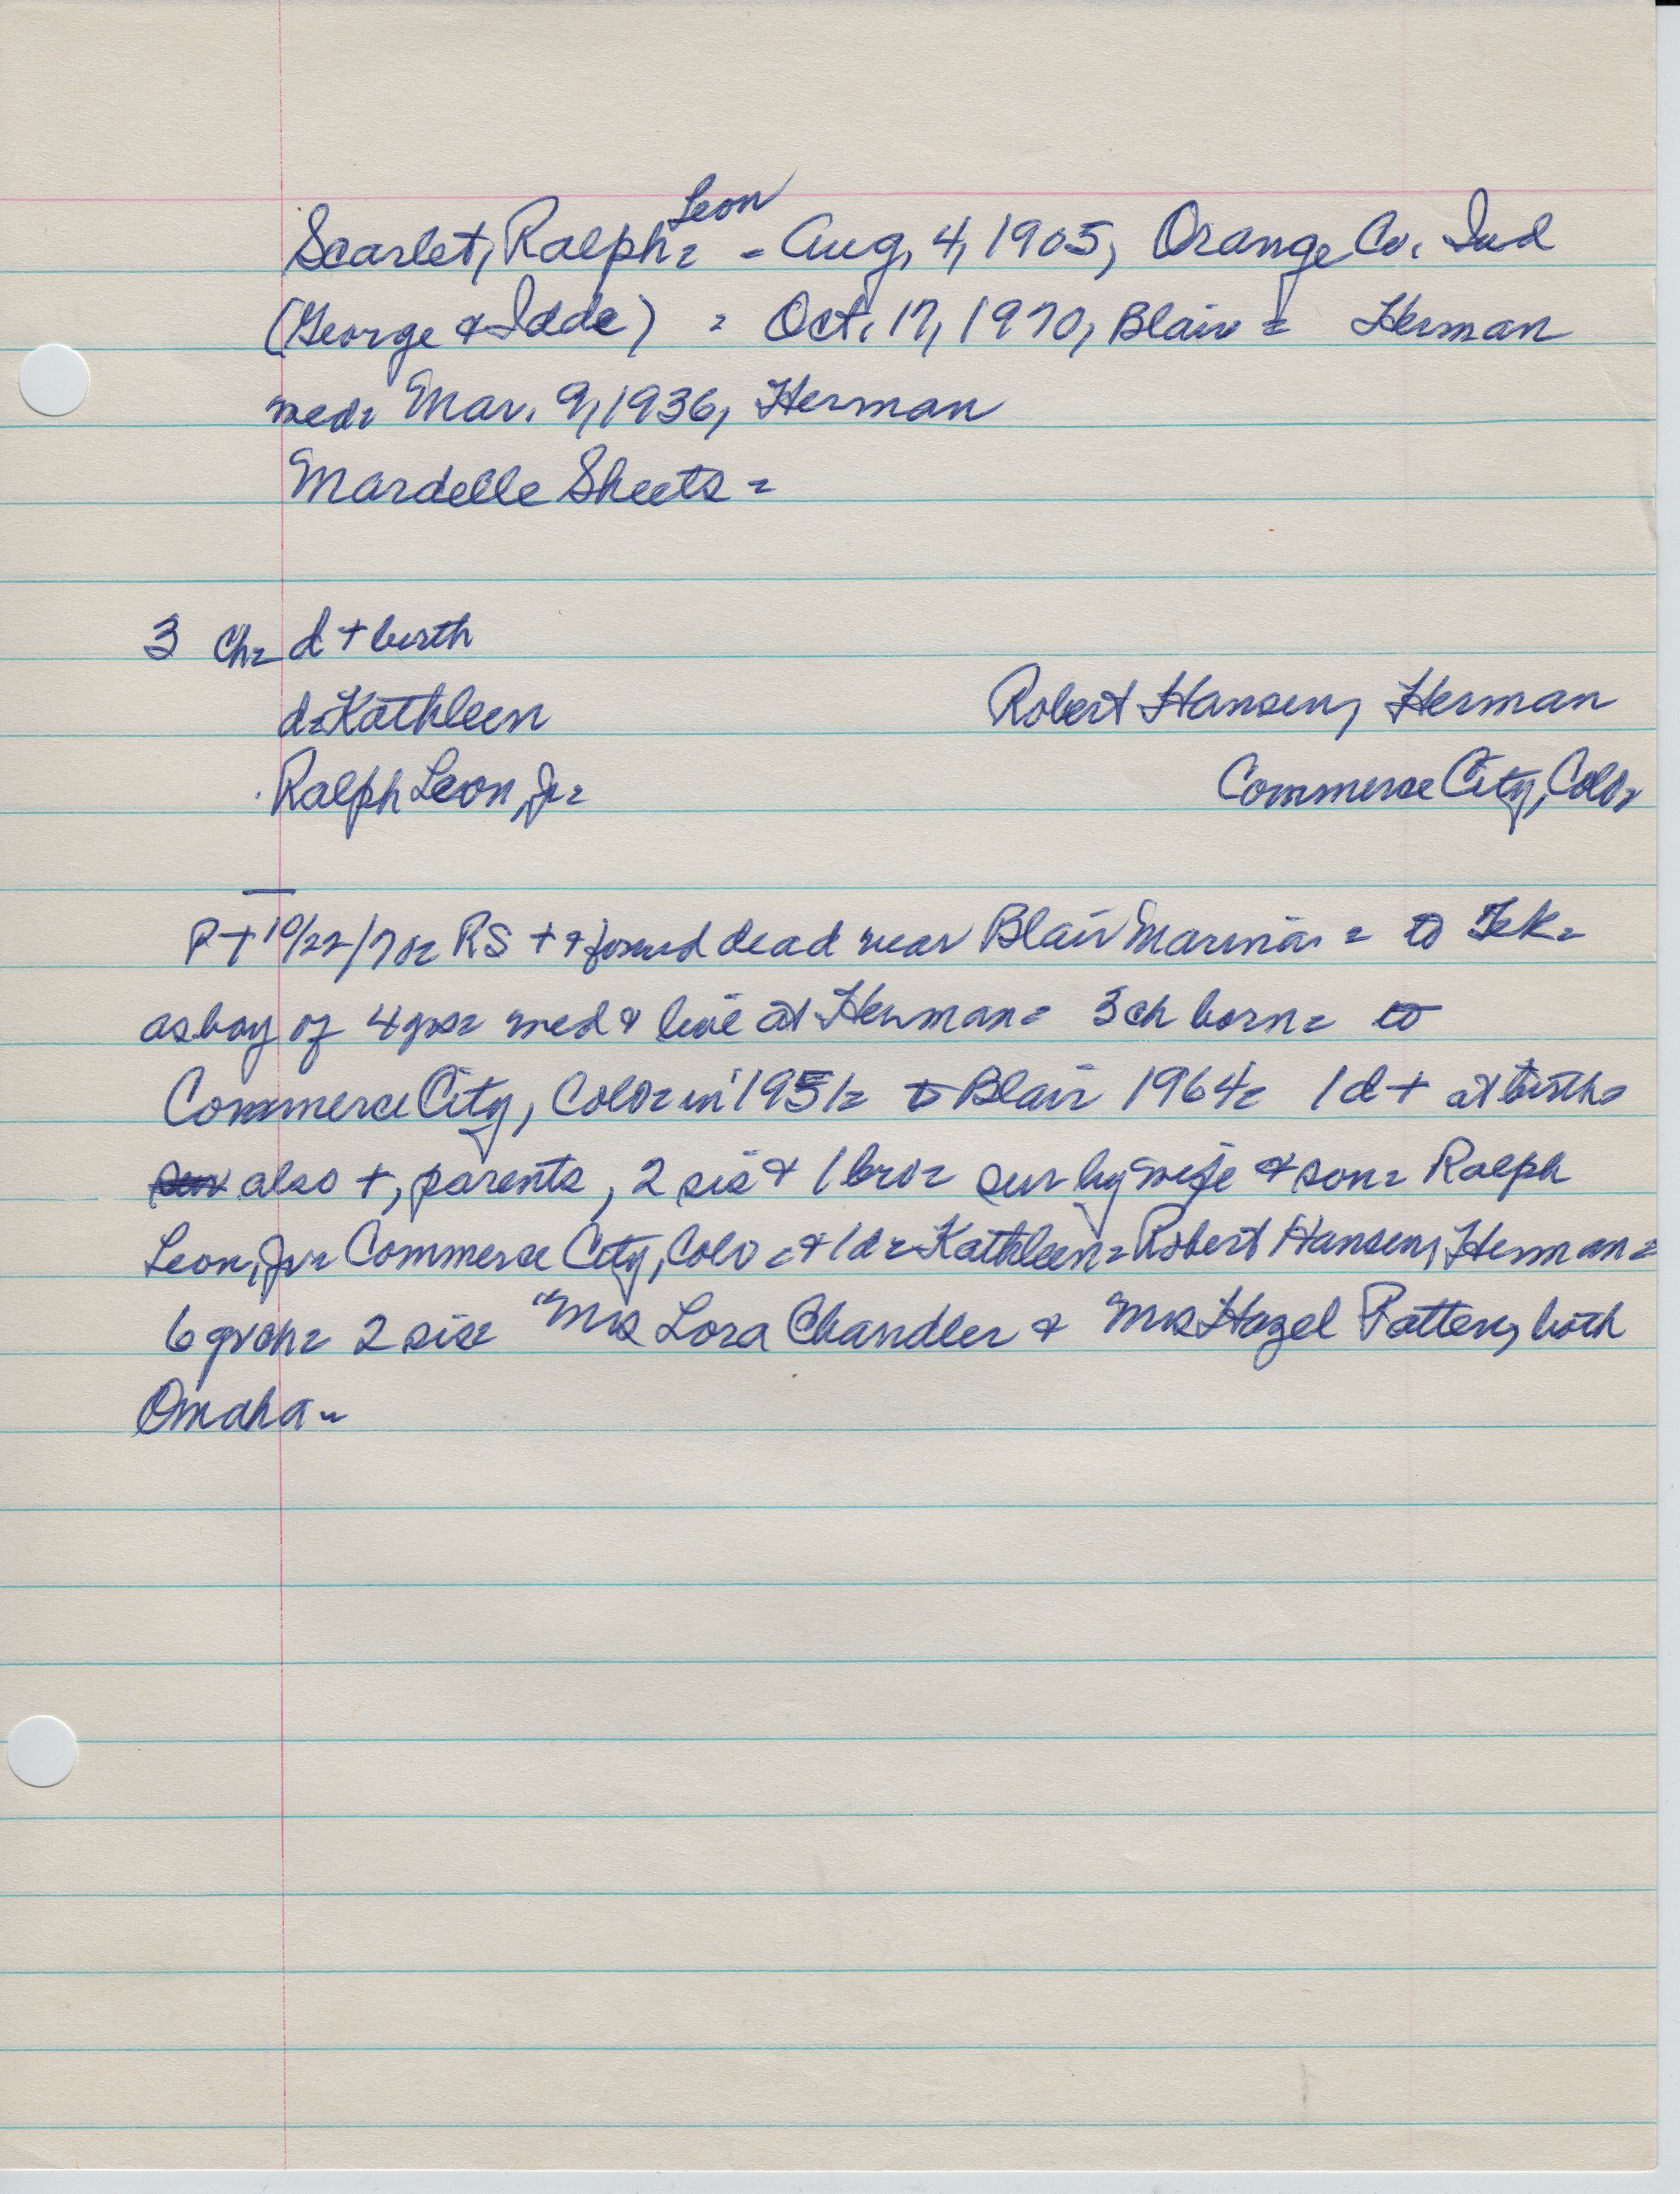 Scarlet, Ralph Leon = - Aug, 4, 1905, Orange Co. Ind
(George & Idde) = Oct. 17, 1970, Blair = Herman
med= Mar. 9, 1936, Herman
Mardelle Sheets =
3 Ch= d + birth
d=Kathleen Robert Hansen, Herman
Ralph Leon, Jr= Commerce City, Colo=
P+ 10/22/70= RS + & found dead near Blair Marina = to Tek=
as boy of 4 yrs= med & live at Herman= 3 ch born= to
Commerce City, Colo= in 1951= to Blair 1964= 1 d + at birth=
also +, parents, 2 sis & 1 bro= sur by wife & son= Ralph
Leon, Jr= Commerce City, Colo = & 1d= Kathleen= Robert Hansen, Herman=
6 grch= 2 sis= "Mrs Lora Chandler & Mrs Hazel Patten, both
Omaha=